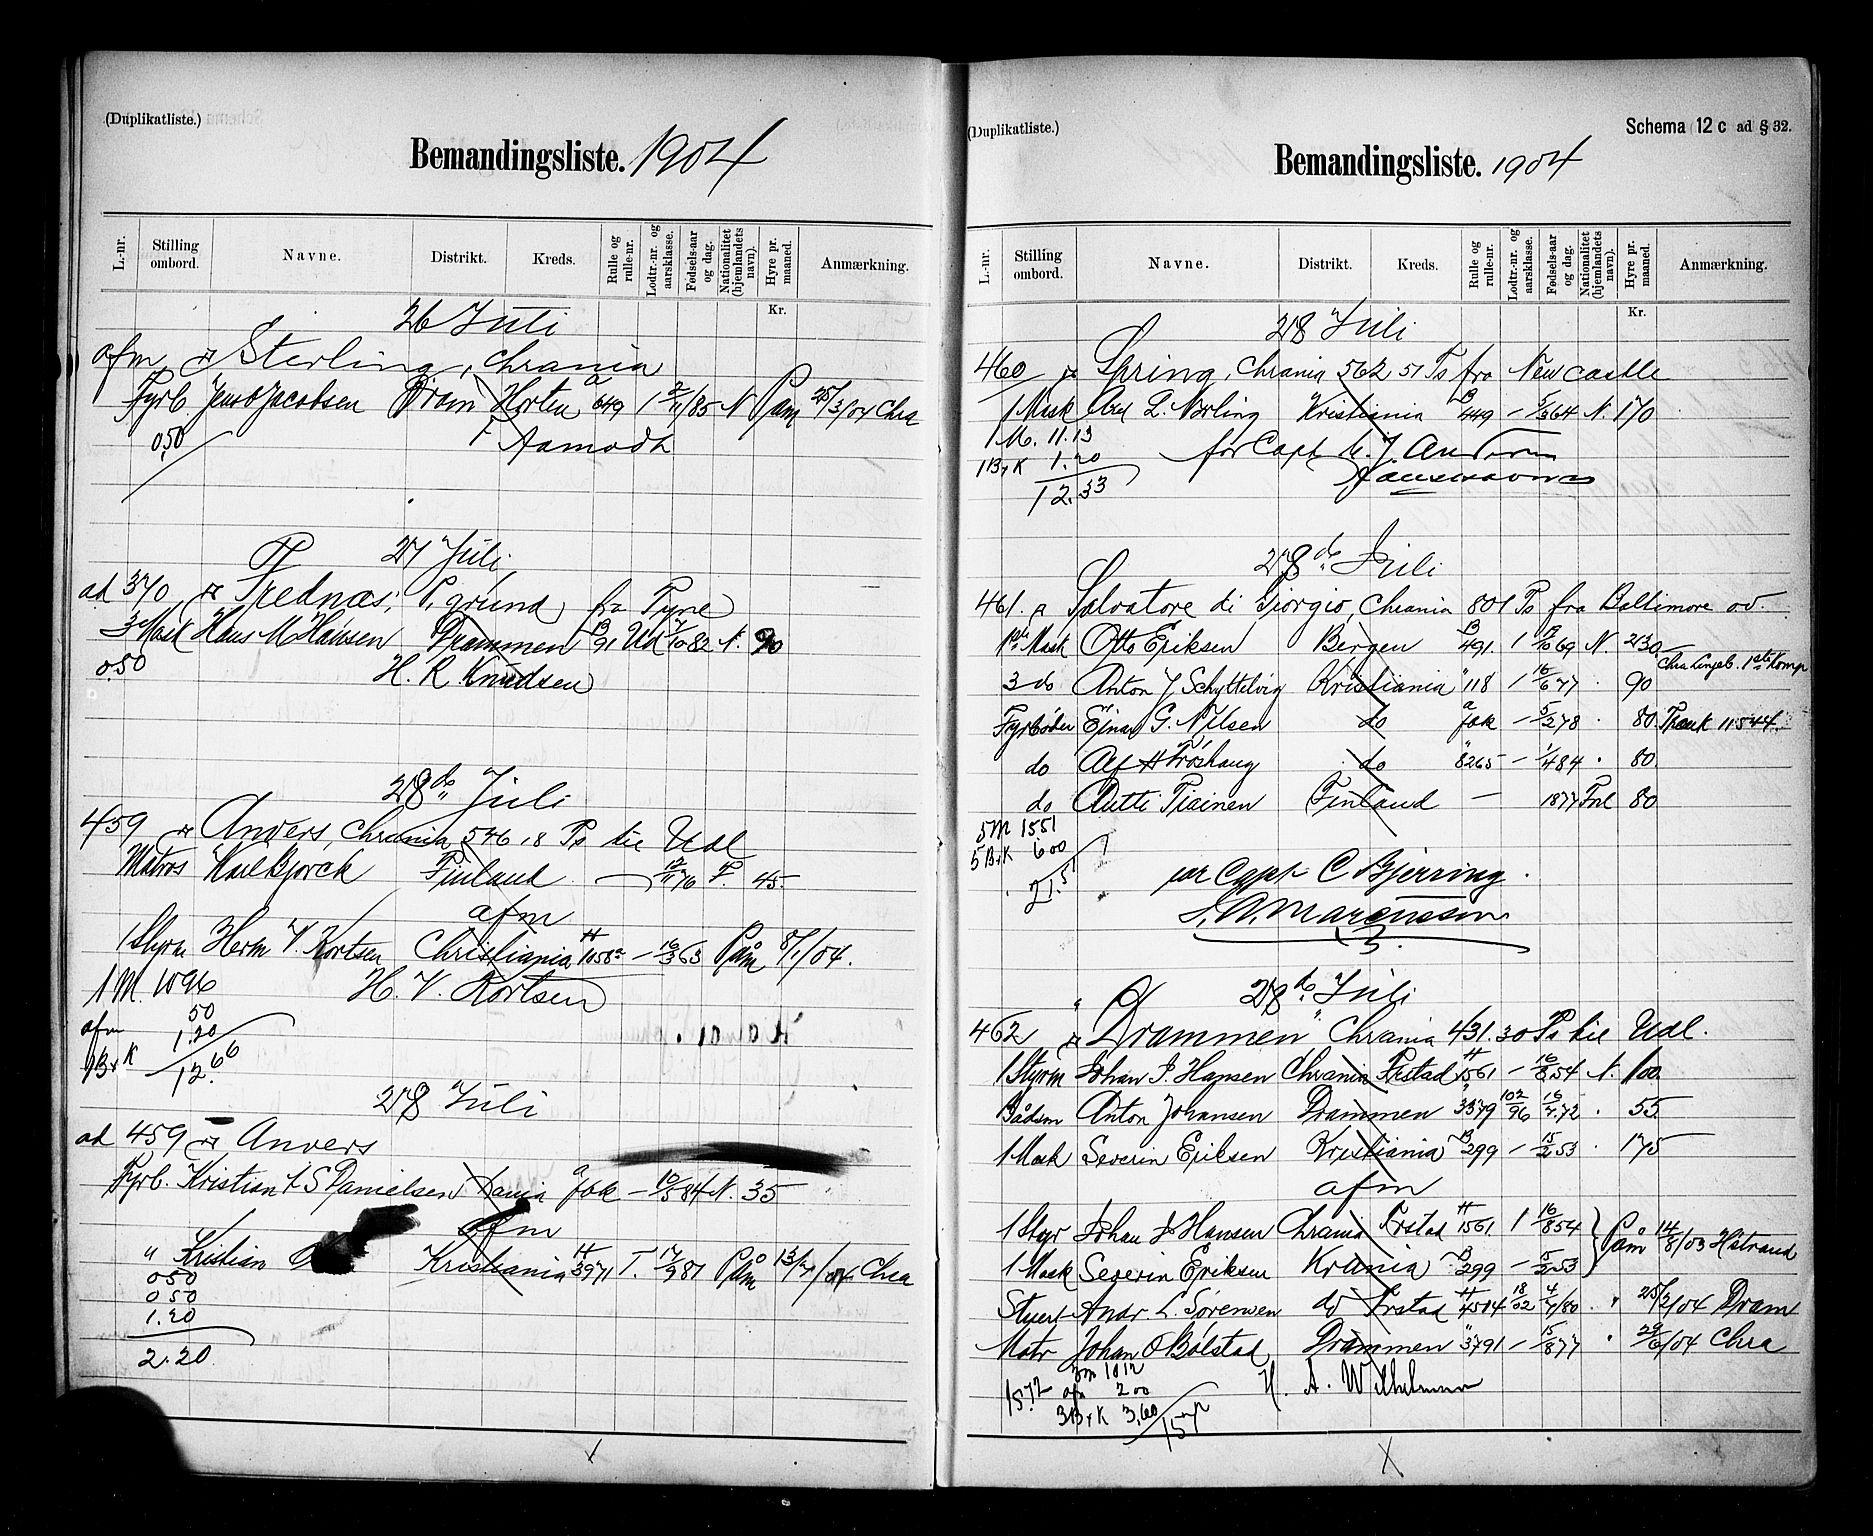 (Duplikatliste.)
Bemandingsliste. 1904
L.-nr. Stilling ombord. Navne. Distrikt. Kreds. Rulle og rulle-nr. Lodtr.-nr. og aarsklasse. Fødsels-aar og dag. Nationalitet (hjemlandets navn). Hyre pr. maaned. Anmærkning.
Kr.
26 Juli
afm Sterling, Chrania
Fyrb. Jens Jacobsen Dram Horten a 649 1 2/11/85 N Paam 25/3/04 Chra
0,50 F Aamodt
27 Juli
ad 370 Prednæs, P.grund, fra Tyne
3 Mask Hans M Hansen Drammen B 91 Ud 7/10 82 N. 90
0.50 H. R. Knudsen
28de Juli
459 Anvers, Chrania 546,18 Ts til Udl
Matros Karl Bjorck Finland — 12/11 76 F. 45-
afm
1 Styrm Herm V. Kortsen Christiania H 1058 — 16/3 63 Paam 8/1/04.
1 M. 10 96 H. V. Kortsen
afm 50
1 B+K 1.20
12.66
28 Juli
ad 459 Anvers
Fyrb. Kristian L S Danielsen Xania a fok — 10/5 84 N. 35
afm
" Kristian Kristiania H 3971 T. 17/9 81 Paam 13/7/04 Chra
0 50
0 50
1.20
2.20
(Duplikatliste.)
Schema 12 c ad § 32.
Bemandingsliste. 1904
L.-nr. Stilling ombord. Navne. Distrikt. Kreds. Rulle og rulle-nr. Lodtr.-nr. og aarsklasse. Fødsels-aar og dag. Nationalitet (hjemlandets navn). Hyre pr. maaned. Anmærkning.
Kr.
28 Juli
460 Spring, Chrania 562 51 Ts fra New castle
1 Mask Axel L. Norling Kristiania B 449 — 5/3 64 N. 170
1 M. 11.13 for Capt
1 B+K 1.20
12.33
28de Juli
461. Salvatore di Giorgio, Chrania 801 Ts fra Baltimore ov.
1ste Mask Otto Eriksen Bergen B 491. 1 9/10 69 N. 230.
3 do Anton J Schyttelvig Kristiania " 118 1 16/6 77 . 90
Fyrbøder Ejnar G. Nilsen do a fok — 5/2 78 . 80
do Alf H Frøshaug do " 8265 — 1/4 84 . 80.
do Antti Tiainen Finland — 1877 Fnl 80
5 M 1551
5 B+K 6 00
21.51
for Capt C Bjerring.
28de Juli
462 "Drammen" Chrania 431.30 Ts til Udl.
1 Styrm Johan J. Hansen Chrania Frstad H 1561 — 16/8 54 N. 100.
Bådsm Anton Johansen Drammen " 3379 102/96 16/7 72 . 55
1 Mask Severin Eriksen Kristiania B 299 — 15/2 53 . 175
afm
1 Styr Johan J Hansen Chrania Frstad H 1561. 1 16/8 54 Paam 14/8/03 Hstrand
1 Mask Severin Eriksen Krania B 299 — 5/2 53
Stuert Andr. L. Sørensen do Frstad H 4514 18/02 4/7/80 . " 25/2/04 Dram
Matr Johan O Bolstad Drammen " 3791 — 15/8 77 " 29/6/04 Chra
3 M 10 12 H. A. Wilhelmsen
15.72 afm 2 00
3 B+K 3.60